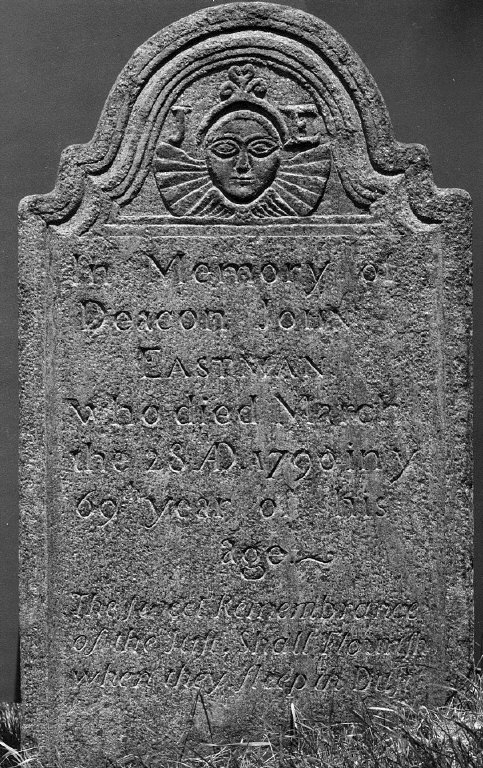 J E
In Memory of
Deacon John
EASTMAN
who died March
the 28 AD. 1790 in y
69th year of his
age
The sweet Remembrance
of the Just, Shall Flourish
when they sleep in Dust